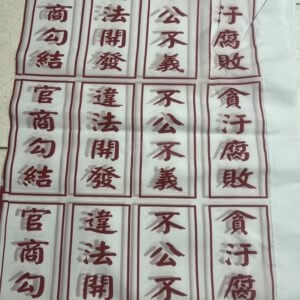 汙腐敗
公不義
法開發
商勾結
貪汙腐敗
不公不義
違法開發
官商勾結
貪汙腐
不公不
違法開
官商勾